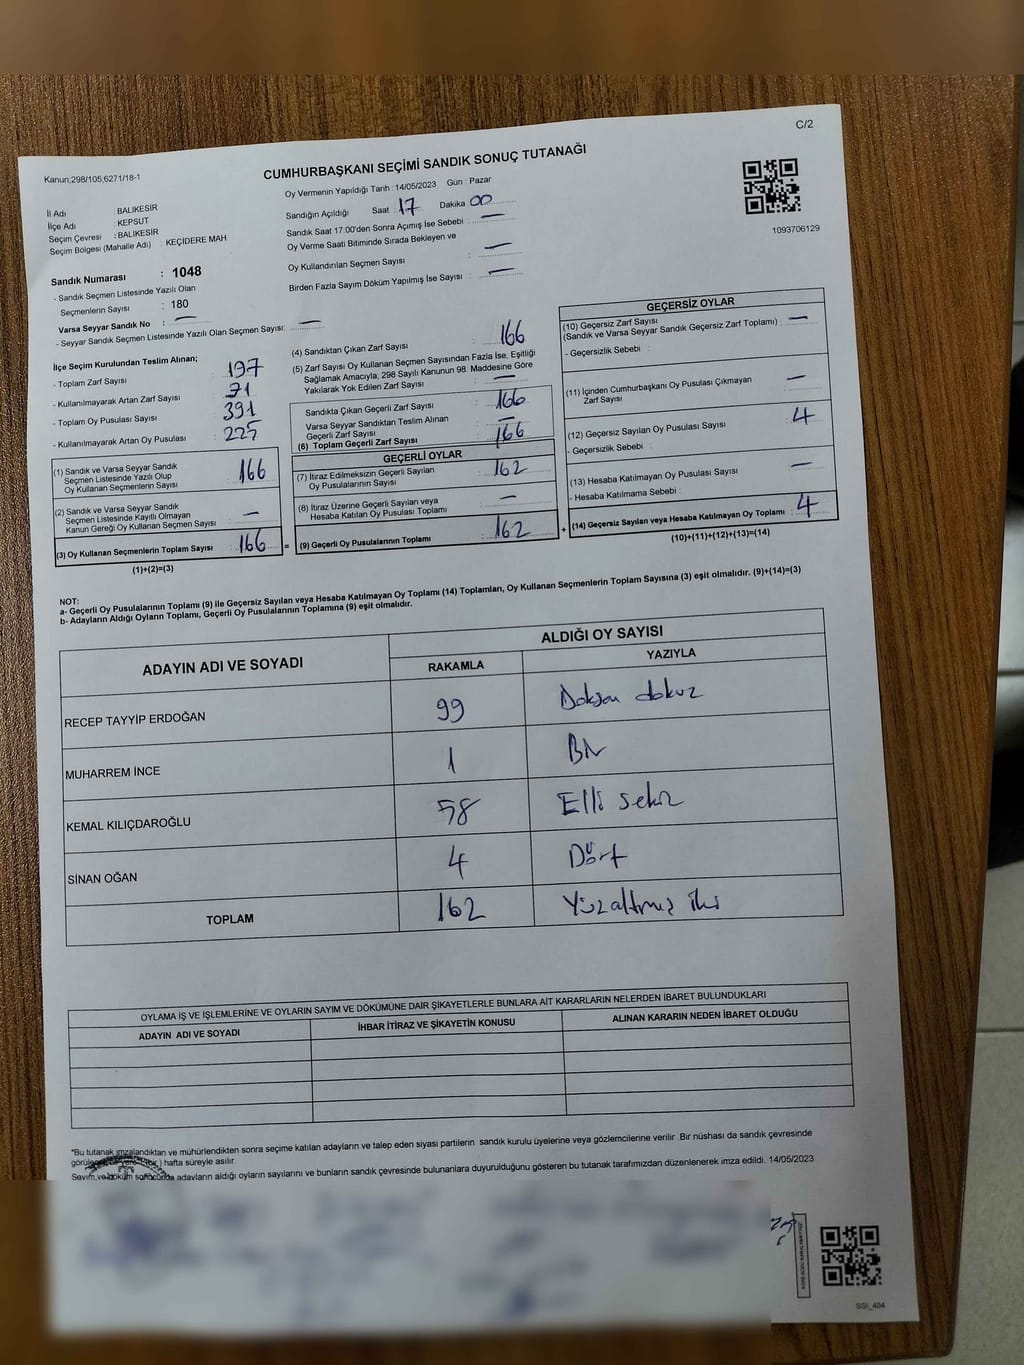 C/2
Kanun;298/105;6271/18-1
CUMHURBAŞKANI SEÇİMİ SANDIK SONUÇ TUTANAĞI
Oy Vermenin Yapıldığı Tarih : 14/05/2023 Gün : Pazar
İl Adı : BALIKESİR
İlçe Adı : KEPSUT
Seçim Çevresi : BALIKESİR
Seçim Bölgesi (Mahalle Adı) : KEÇİDERE MAH.
Sandığın Açıldığı Saat : 17 Dakika : 00
Sandık Saat 17:00'den Sonra Açımış İse Sebebi : —
Oy Verme Saati Bitiminde Sırada Bekleyen ve
Oy Kullandırılan Seçmen Sayısı : —
Birden Fazla Sayım Döküm Yapılmış İse Sayısı : —
1093706129
Sandık Numarası : 1048
- Sandık Seçmen Listesinde Yazılı Olan
Seçmenlerin Sayısı : 180
Varsa Seyyar Sandık No : —
- Seyyar Sandık Seçmen Listesinde Yazılı Olan Seçmen Sayısı: —
İlçe Seçim Kurulundan Teslim Alınan;
- Toplam Zarf Sayısı : 197
- Kullanılmayarak Artan Zarf Sayısı : 31
- Toplam Oy Pusulası Sayısı : 391
- Kullanılmayarak Artan Oy Pusulası : 225
(1) Sandık ve Varsa Seyyar Sandık
Seçmen Listesinde Yazılı Olup
Oy Kullanan Seçmenlerin Sayısı : 166
(2) Sandık ve Varsa Seyyar Sandık
Seçmen Listesinde Kayıtlı Olmayan
Kanun Gereği Oy Kullanan Seçmen Sayısı : —
(3) Oy Kullanan Seçmenlerin Toplam Sayısı : 166 =
(1)+(2)=(3)
(4) Sandıktan Çıkan Zarf Sayısı : 166
(5) Zarf Sayısı Oy Kullanan Seçmen Sayısından Fazla İse, Eşitliği
Sağlamak Amacıyla, 298 Sayılı Kanunun 98. Maddesine Göre
Yakılarak Yok Edilen Zarf Sayısı : —
Sandıkta Çıkan Geçerli Zarf Sayısı : 166
Varsa Seyyar Sandıktan Teslim Alınan
Geçerli Zarf Sayısı : —
(6) Toplam Geçerli Zarf Sayısı : 166
GEÇERLİ OYLAR
(7) İtiraz Edilmeksizin Geçerli Sayılan
Oy Pusulalarının Sayısı : 162
(8) İtiraz Üzerine Geçerli Sayılan veya
Hesaba Katılan Oy Pusulası Toplamı : —
(9) Geçerli Oy Pusulalarının Toplamı : 162 +
GEÇERSİZ OYLAR
(10) Geçersiz Zarf Sayısı : —
(Sandık ve Varsa Seyyar Sandık Geçersiz Zarf Toplamı)
- Geçersizlik Sebebi :
(11) İçinden Cumhurbaşkanı Oy Pusulası Çıkmayan
Zarf Sayısı : —
(12) Geçersiz Sayılan Oy Pusulası Sayısı : 4
- Geçersizlik Sebebi :
(13) Hesaba Katılmayan Oy Pusulası Sayısı : —
- Hesaba Katılmama Sebebi :
(14) Geçersiz Sayılan veya Hesaba Katılmayan Oy Toplamı : 4
(10)+(11)+(12)+(13)=(14)
NOT:
a- Geçerli Oy Pusulalarının Toplamı (9) ile Geçersiz Sayılan veya Hesaba Katılmayan Oy Toplamı (14) Toplamları, Oy Kullanan Seçmenlerin Toplam Sayısına (3) eşit olmalıdır. (9)+(14)=(3)
b- Adayların Aldığı Oyların Toplamı, Geçerli Oy Pusulalarının Toplamına (9) eşit olmalıdır.
ADAYIN ADI VE SOYADI
ALDIĞI OY SAYISI
RAKAMLA YAZIYLA
RECEP TAYYİP ERDOĞAN 99 Doksan dokuz
MUHARREM İNCE 1 Bir
KEMAL KILIÇDAROĞLU 58 Elli sekiz
SİNAN OĞAN 4 Dört
TOPLAM 162 Yüzaltmış iki
OYLAMA İŞ VE İŞLEMLERİNE VE OYLARIN SAYIM VE DÖKÜMÜNE DAİR ŞİKAYETLERLE BUNLARA AİT KARARLARIN NELERDEN İBARET BULUNDUKLARI
ADAYIN ADI VE SOYADI İHBAR İTİRAZ VE ŞİKAYETİN KONUSU ALINAN KARARIN NEDEN İBARET OLDUĞU
"Bu tutanak imzalandıktan ve mühürlendikten sonra seçime katılan adayların ve talep eden siyasi partilerin sandık kurulu üyelerine veya gözlemcilerine verilir .Bir nüshası da sandık çevresinde
) hafta süreyle asılır.
Sayım ve döküm sonucunda adayların aldığı oyların sayılarını ve bunların sandık çevresinde bulunanlara duyurulduğunu gösteren bu tutanak tarafımızdan düzenlenerek imza edildi. 14/05/2023
SSI_404